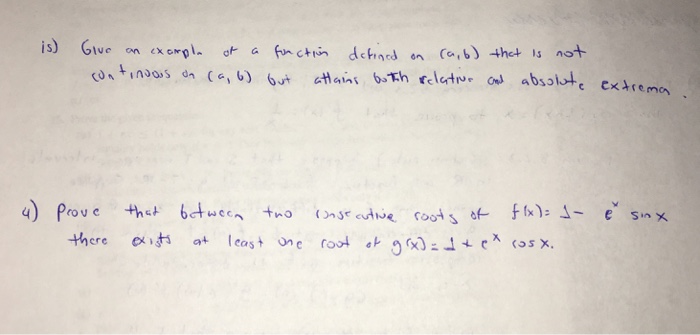 is) Give an example of a function defined on (a,b) that is not
continuous on (a,b) but attains both relative and absolute extrema.
4) Prove that between two consecutive roots of f(x)= 1- e^x sin x
there exists at least one root of g(x) = 1 + e^x cos x.